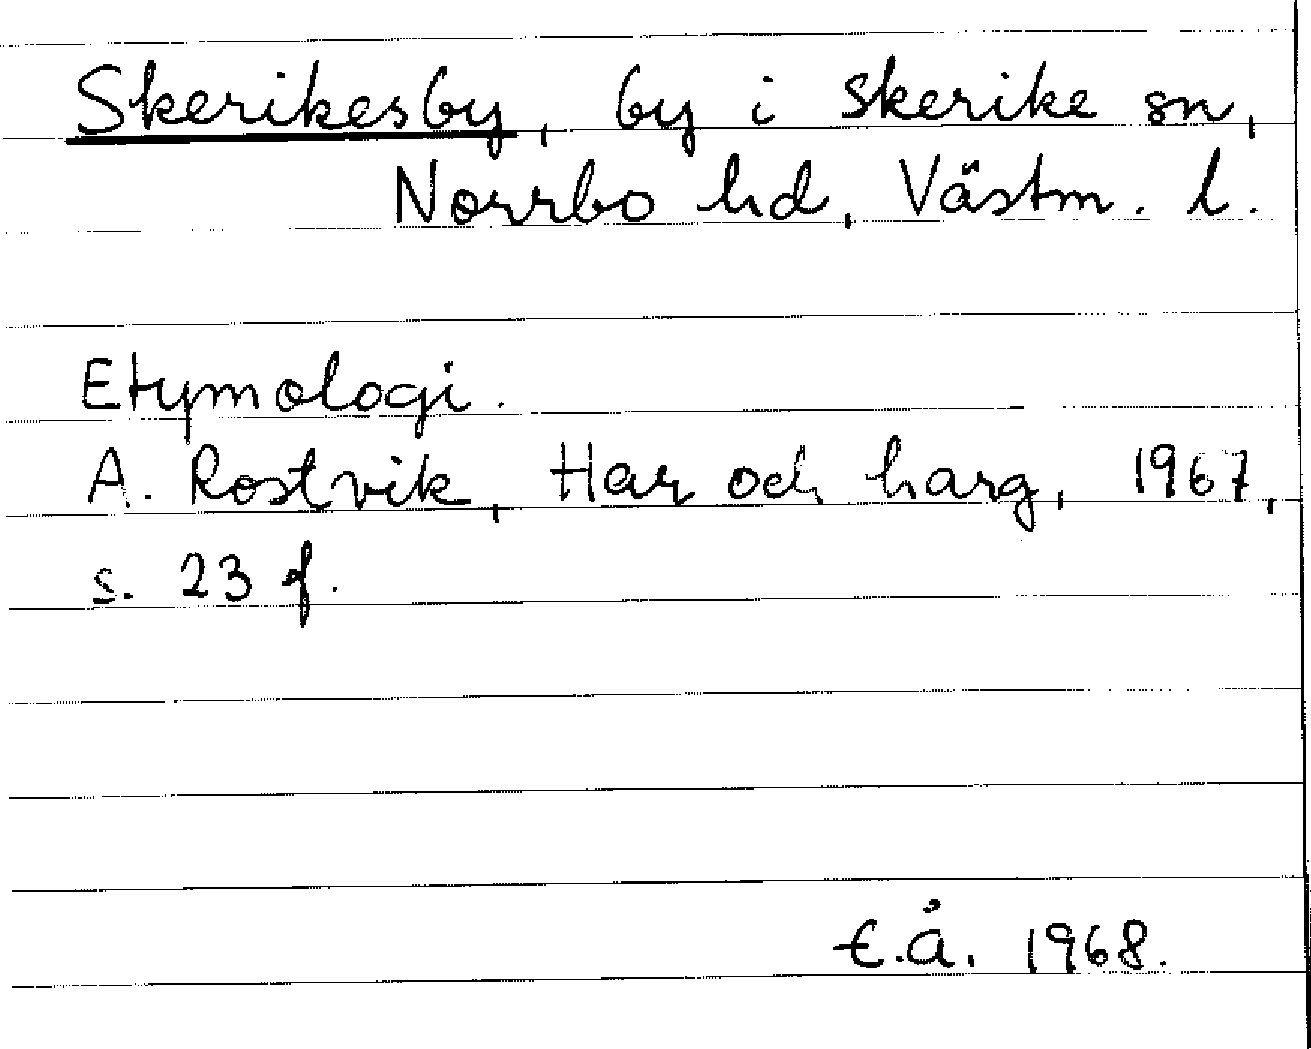 Skerikesby, by i Skerike sn,
Norrbo hd, Västm. l.
Etymologi.
A. Rostvik, Har och harg, 1967,
s. 23 f.
E.Å. 1968.